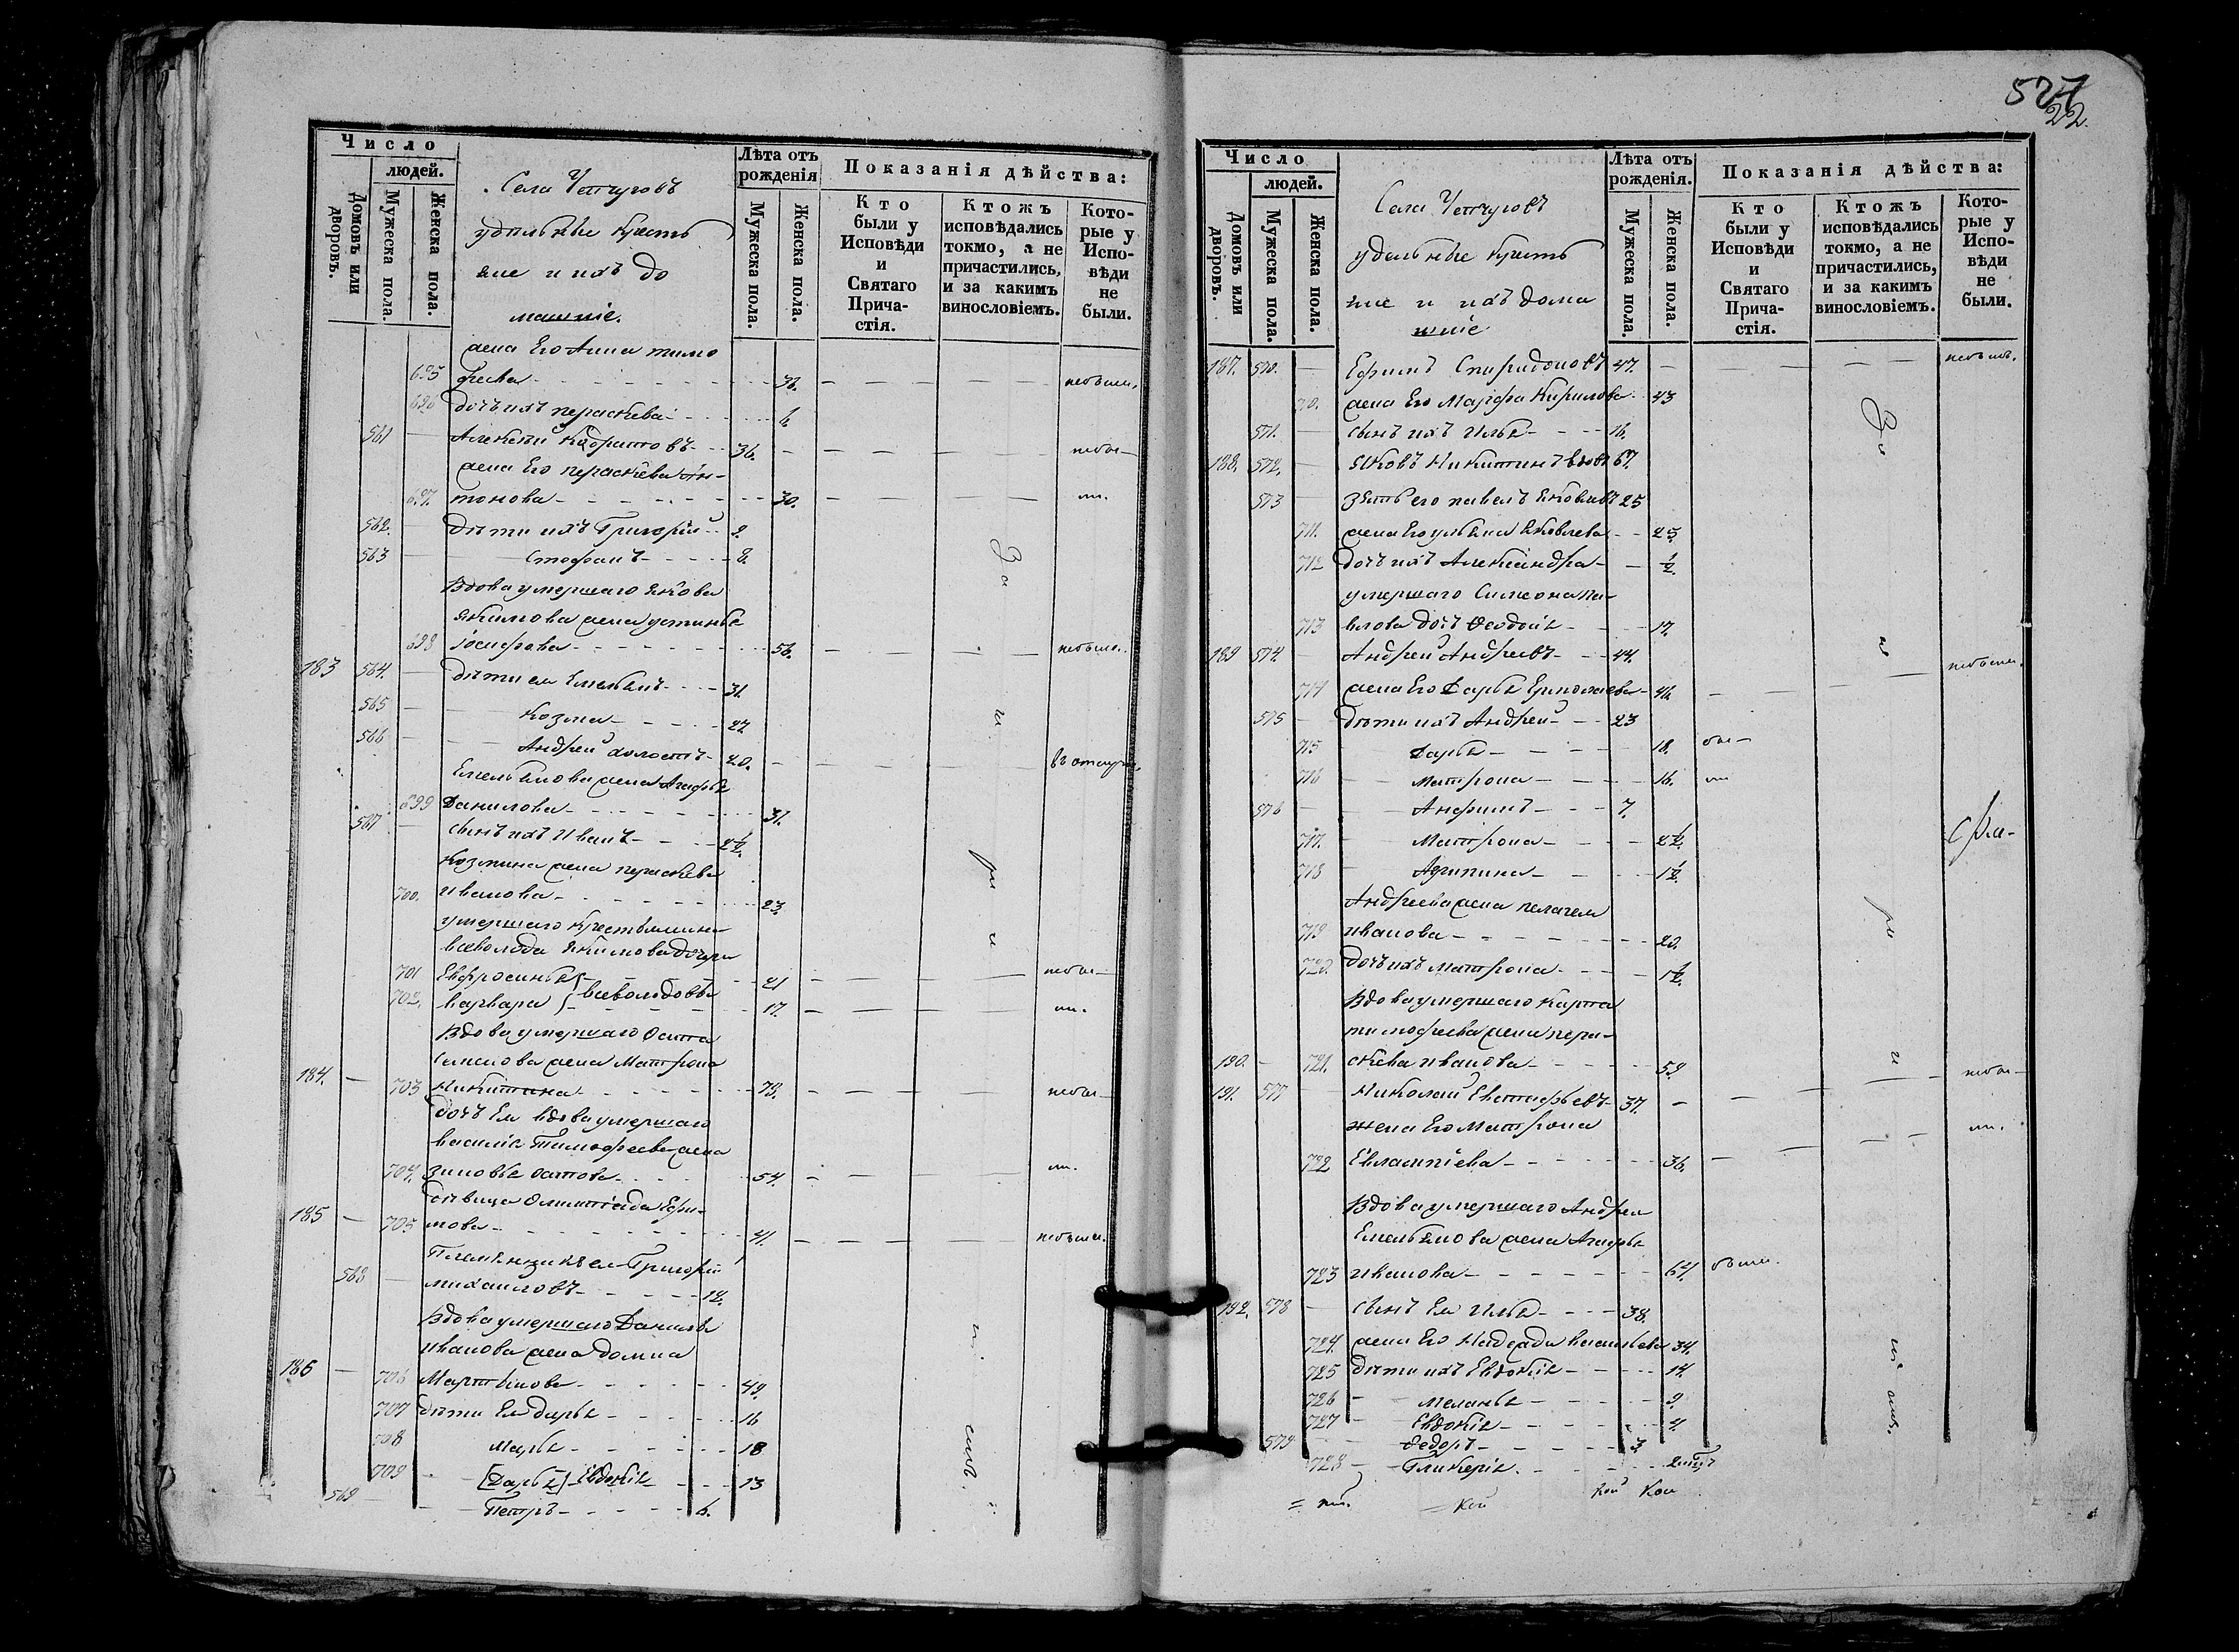 Число
людей.
Домовъ или дворовъ.
Мужеска пола.
Женска пола.
Села Чепчуговъ
удельные крестья
яне и ихъ до
машніе.
Лѣта отъ рожденія
Мужеска пола.
Женска пола.
Показанія дѣйства:
Кто были у Исповѣди и Святаго Прича-стія.
Ктожъ исповѣдались токмо, а не причастились, и за какимъ винословіемъ.
Кото-рые у Испо-вѣди не были.
жена Его Анна тимо
695 феева - 38. небыли.
696 дочь ихъ параскева - 6
561 Алексѣй - 36. небы-
жена Его параскева Ан-
697. тонова - 30. ли.
562. дѣти ихъ Григорій - 9.
563 Стефанъ - 8.
Вдова умершаго Якова
Якимова жена устинья
698 Іосифова - 56. небыли.
183 564. дѣти ея Емельянъ - 31.
565 Козма - 27
566 Андрей холостъ - 20.
Емельянова жена Агафья
699 Данилова - 31.
567 сынъ ихъ Иванъ - 2½.
Козмина жена параскева
700. иванова - 23.
умершаго крестьянина
всеволода Якимова дочери
701 Евфросинья - 21 небы-
702. варвара } всеволодовы - 17. ли.
Вдова умершаго
Семенова жена Матрона
184. 703 никитина - 73. небы-
дочь Ея вдова умершаго
василія Тимофеева жена
704. зиновья - 54. ли.
дѣвица Олимпіада Ефи-
185 705 мова - 41. небыли.
Племянникъ ея Григорій
568 михаиловъ - 12.
Вдова умершаго Данила
иванова жена домна
186 706 Мартынова - 49.
707 дѣти Ея дарья - 16
708 Марья - 18
709 [Дарья] Евдокія - 13
569 Петръ - 6.
За
и
527
22.
Число
людей.
Домовъ или дворовъ.
Мужеска пола.
Женска пола.
Села Чепчуговъ
удельные крестья
яне и ихъ дома
шніе
Лѣта отъ рожденія.
Мужеска пола.
Женска пола.
Показанія дѣйства:
Кто были у Исповѣди и Святаго Прича-стія.
Ктожъ исповѣдались токмо, а не причастились, и за какимъ винословіемъ.
Кото-рые у Испо-вѣди не были.
187. 570. Ефимъ Спиридоновъ 47. небыли.
710. жена Его Марфа Кирилова 43
571. сынъ ихъ Илья - 16.
188. 572. Яковъ Никитинъ вдовъ 67.
573 зять его павелъ Яковлевъ 25
711. жена Его ульяна Яковлева - 25.
712 дочь ихъ Александра - ½.
умершаго Симеона па-
713 влова дочь Феодосія - 17.
189 574. Андрей Андреевъ - 44. небыли.
714 жена Его Дарья Ермолаева - 46.
575 дѣти ихъ Андрей - 23
715 Дарья - 18. бы-
716 Матрона - 16. ли
576 Анфимъ - 7.
717. Матрона - 2½.
718 Агрипина - 1½.
Андреева жена пелагея
719 иванова - 20.
720. дочь ихъ Матрона - 1½.
Вдова умершаго Карпа
тимофеева жена пара-
190. 721. скева иванова - 59. небы-
191. 577 Николай Евстифѣевъ - 37. ли.
жена Его Матрона
722 Евлампіева - 36.
Вдова умершаго Андрея
Емельянова жена Агафья
723 иванова - 64. были.
192. 578 сынъ Ея Илья - 38.
724. жена Его Надежда васильева 34.
725 дѣти ихъ Евдокія - 14.
726 Меланья - 9.
727 Евдокія - 4.
579 Федоръ - 3
728 Гликерія.
За
и